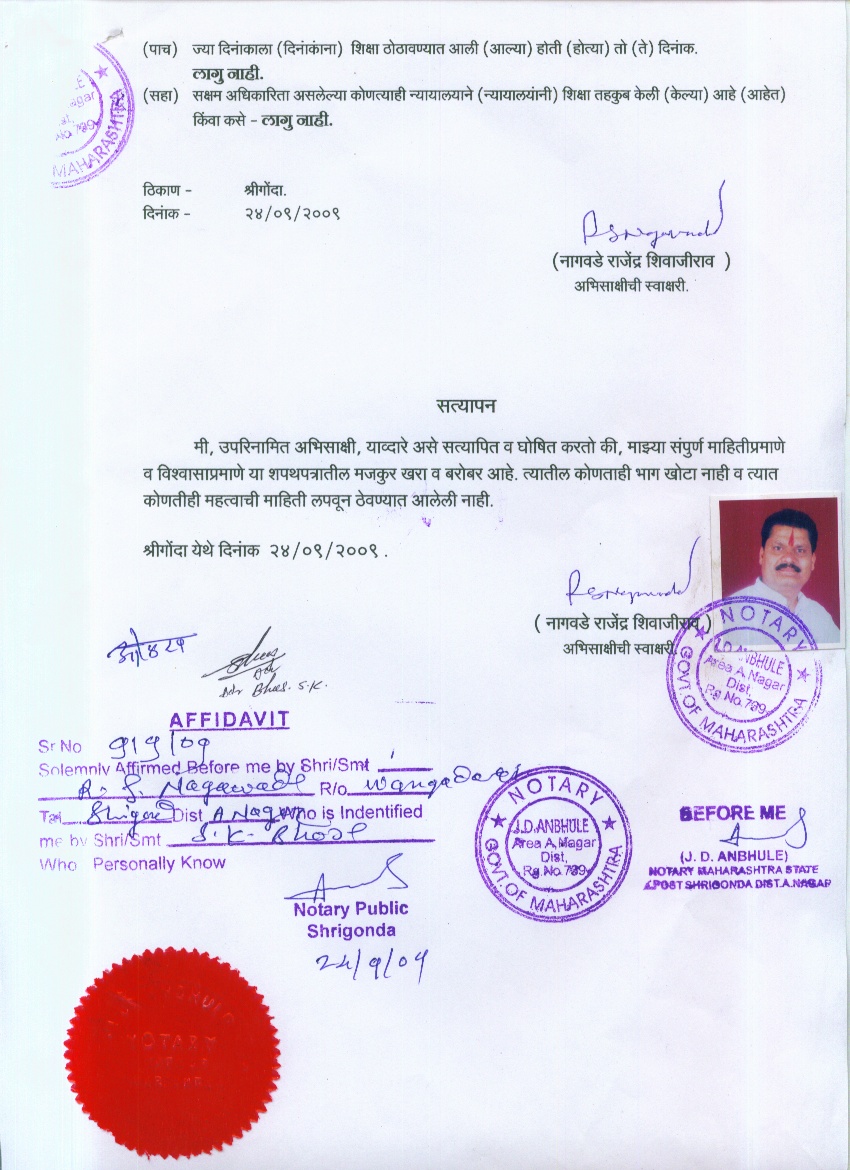 (पाच) ज्या दिनांकाला (दिनांकांना) शिक्षा ठोठावण्यात आली (आल्या) होती (होत्या) तो (ते) दिनांक.
लागु नाही.
(सहा) सक्षम अधिकारिता असलेल्या कोणत्याही न्यायालयाने (न्यायालयांनी) शिक्षा तहकुब केली (केल्या) आहे (आहेत)
किंवा कसे - लागु नाही.
MAHARASHTRA
ठिकाण - श्रीगोंदा.
दिनांक - २४/०९/२००९
(नागवडे राजेंद्र शिवाजीराव )
अभिसाक्षीची स्वाक्षरी.
सत्यापन
मी, उपरिनामित अभिसाक्षी, याव्दारे असे सत्यापित व घोषित करतो की, माझ्या संपुर्ण माहितीप्रमाणे
व विश्वासाप्रमाणे या शपथपत्रातील मजकुर खरा व बरोबर आहे. त्यातील कोणताही भाग खोटा नाही व त्यात
कोणतीही महत्वाची माहिती लपवून ठेवण्यात आलेली नाही.
श्रीगोंदा येथे दिनांक २४/०९/२००९ .
( नागवडे राजेंद्र शिवाजीराव )
अभिसाक्षीची स्वाक्षरी
NOTARY
J.D.ANBHULE
Area A.Nagar
Dist.
Rg.No.739
GOVT. OF MAHARASHTRA
Adv Bhos. S.K.
AFFIDAVIT
Sr No 919/09
Solemnly Affirmed Before me by Shri/Smt
R. S. Nagawade R/o
Tal Shrigonda Dist A Nagar Who is Indentified
me by Shri/Smt S.K. Bhose
Who Personally Know
Notary Public
Shrigonda
24/9/09
NOTARY
J.D.ANBHULE
Area A.Nagar
Dist.
Rg.No.739
GOVT. OF MAHARASHTRA
BEFORE ME
(J. D. ANBHULE)
NOTARY MAHARASHTRA STATE
A.POST SHRIGONDA DIST.A.NAGAR